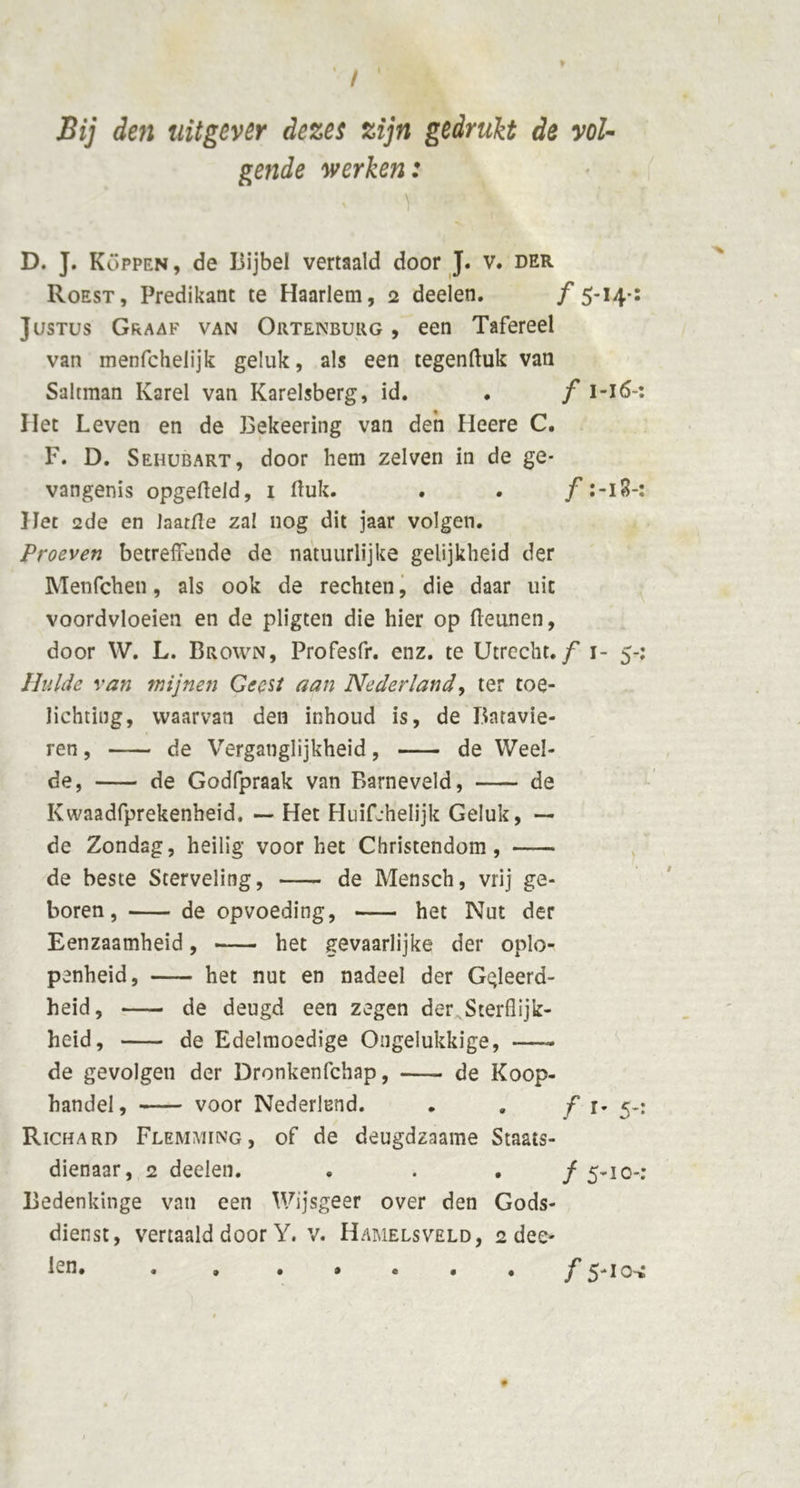 Bij den uitgever dezes zijn gedrukt de vol-
gende werken:
D. J. Köppen, de Bijbel vertaald door J. v. der
Roest, Predikant te Haarlem, 2 deelen. f 5-14-:
Justus Graaf van Ortenburg, een Tafereel
van menſchelijk geluk, als een tegenſtuk van
Saltman Karel van Karelsberg, id. . f 1-16-:
Het Leven en de Bekeering van den Heere C.
F. D. Sehubart, door hem zelven in de ge-
vangenis opgeſteld, 1 ſtuk. . . f :-18-:
Het 2de en laatſte zal nog dit jaar volgen.
Proeven betreffende de natuurlijke gelijkheid der
Menſchen, als ook de rechten, die daar uit
voordvloeien en de pligten die hier op ſteunen,
door W. L. Brown, Profesſr. enz. te Utrecht. f 1- 5-:
Hulde van mijnen Geest aan Nederland, ter toe-
lichting, waarvan den inhoud is, de Batavie-
ren, —— de Verganglijkheid, —— de Weel-
de, —— de Godſpraak van Barneveld, —— de
Kwaadſprekenheid. — Het Huiſchelijk Geluk, —
de Zondag, heilig voor het Christendom, ——
de beste Sterveling, —— de Mensch, vrij ge-
boren, —— de opvoeding, —— het Nut der
Eenzaamheid, —— het gevaarlijke der oplo-
penheid, —— het nut en nadeel der Geleerd-
heid, —— de deugd een zegen der Sterflijk-
heid, —— de Edelmoedige Ongelukkige, ——
de gevolgen der Dronkenſchap, —— de Koop-
handel, —— voor Nederlend. . . f 1- 5-:
Richard Flemming, of de deugdzaame Staats-
dienaar, 2 deelen. . . . f 5-10-:
Bedenkinge van een Wijsgeer over den Gods-
dienst, vertaald door Y. v. Hamelsveld, 2 dee-
len. . . . . . . . f 5-10-: